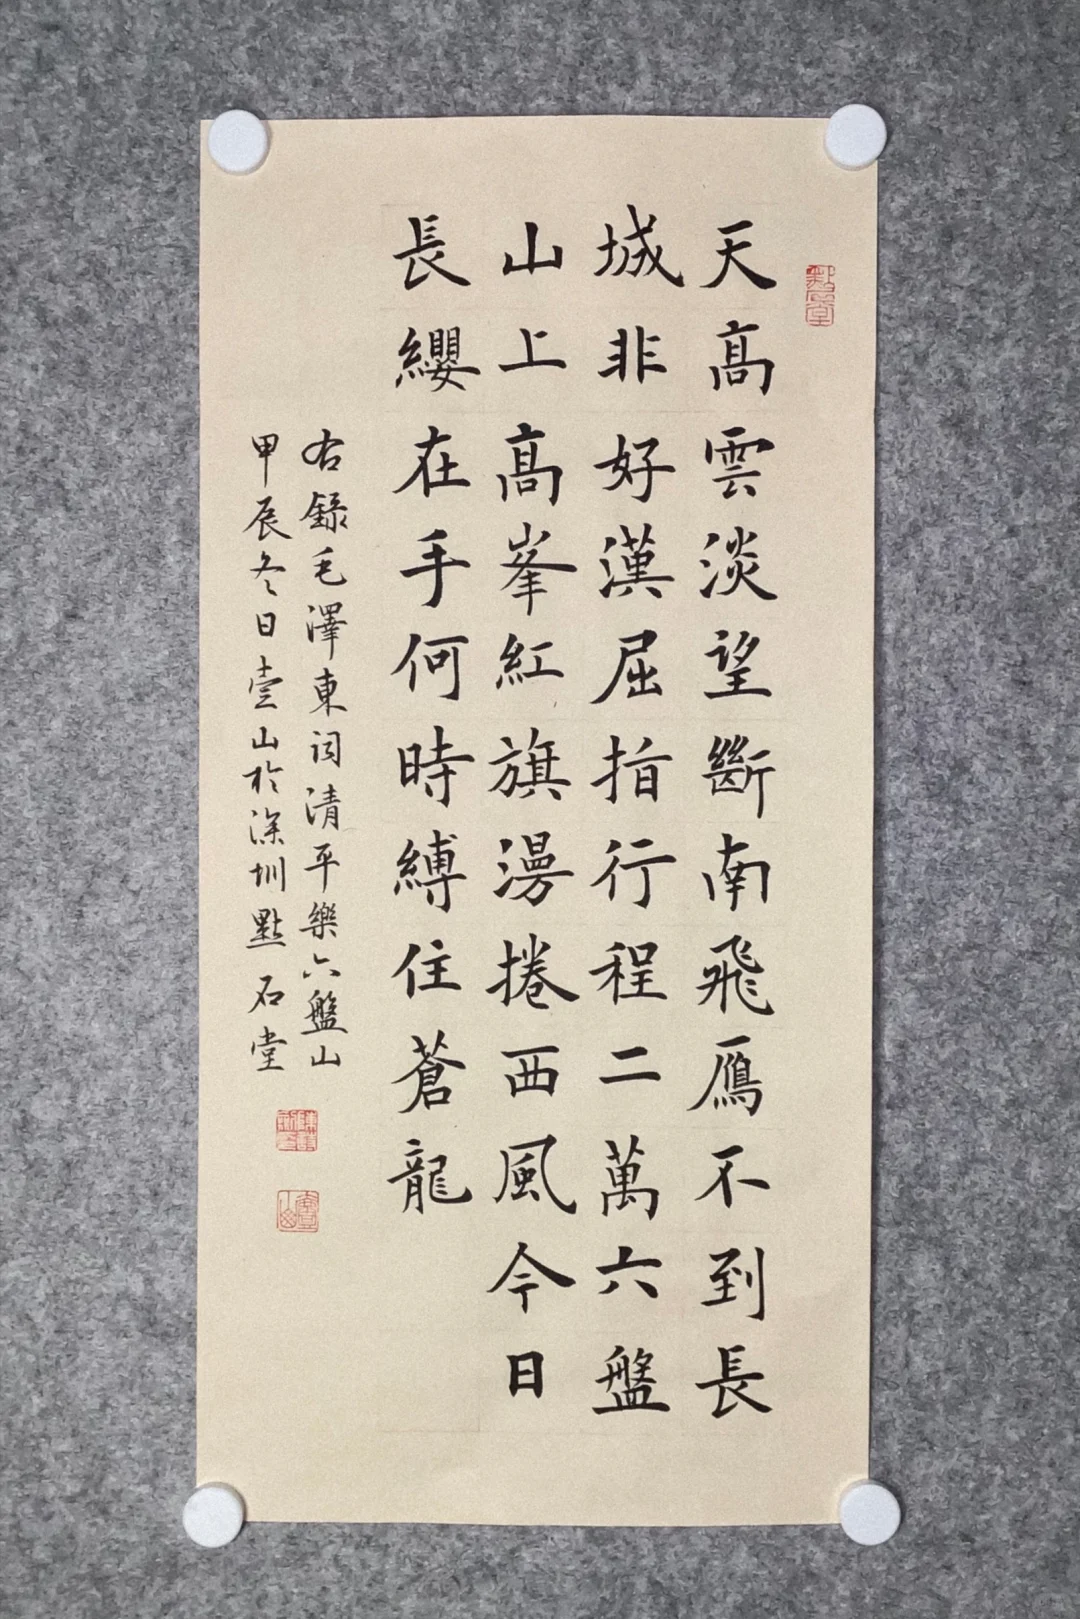 天高雲淡望斷南飛鴈不到長
城非好漢屈指行程二萬六盤
山上高峯紅旗漫捲西風今日
長纓在手何時縛住蒼龍
右錄毛澤東詞清平樂六盤山
甲辰冬日壹山於深圳點石堂
點石堂